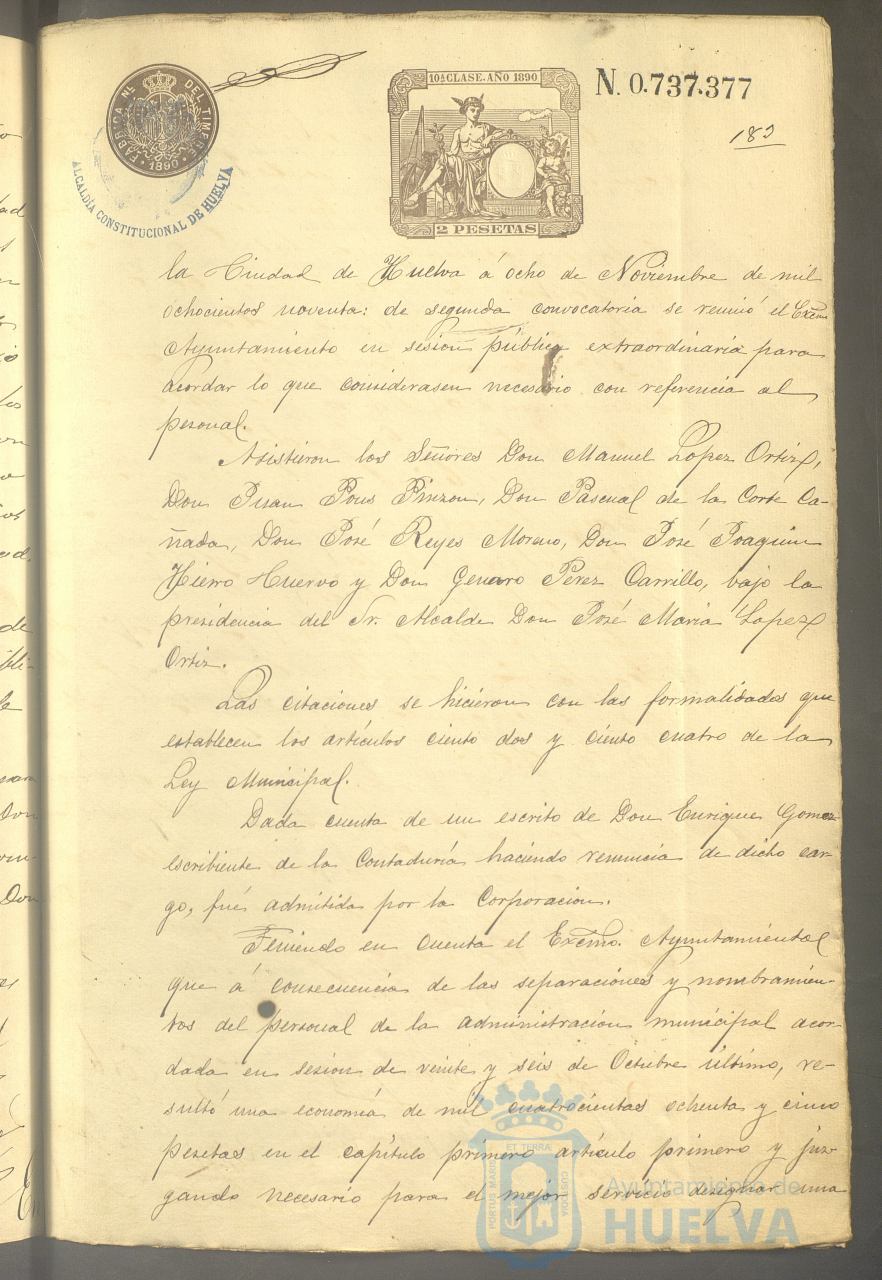 FÁBRICA Nl. DEL TIMBRE
1890
ALCALDÍA CONSTITUCIONAL DE HUELVA
10ª CLASE. AÑO 1890
2 PESETAS
N. 0.737.377
la Ciudad de Huelva á ocho de Noviembre de mil
ochocientos noventa: de segunda convocatoria se reunió el Excmo
Ayuntamiento en sesion pública extraordinaria para
acordar lo que considerasen necesario con referencia al
personal.
Asistieron los Señores Don Manuel López Ortiz,
Don Juan Pons Pinzon, Don Pascual de la Corte Ca-
ñada, Don José Reyes Moreno, Don José Joaquin
Hierro Huervo y Don Genaro Perez Carrillo, bajo la
presidencia del Sr. Alcalde Don José María Lopez
Ortiz.
Las citaciones se hicieron con las formalidades que
establecen los artículos ciento dos y ciento cuatro de la
Ley Municipal.
Dada cuenta de un escrito de Don Enrique Gomez
escribiente de la Contaduría haciendo renuncia de dicho car-
go, fué admitida por la Corporacion.
Teniendo en cuenta el Excmo. Ayuntamiento
que á consecuencia de las separaciones y nombramien-
tos del personal de la administracion municipal acor-
dada en sesion de veinte y seis de Octubre último, re-
sultó una economía de mil cuatrocientas ochenta y cinco
pesetas en el capítulo primero artículo primero y juz-
gando necesario para el mejor servicio designar una
PORTUS MARIS ET TERRAE CUSTODIA
Ayuntamiento de
HUELVA